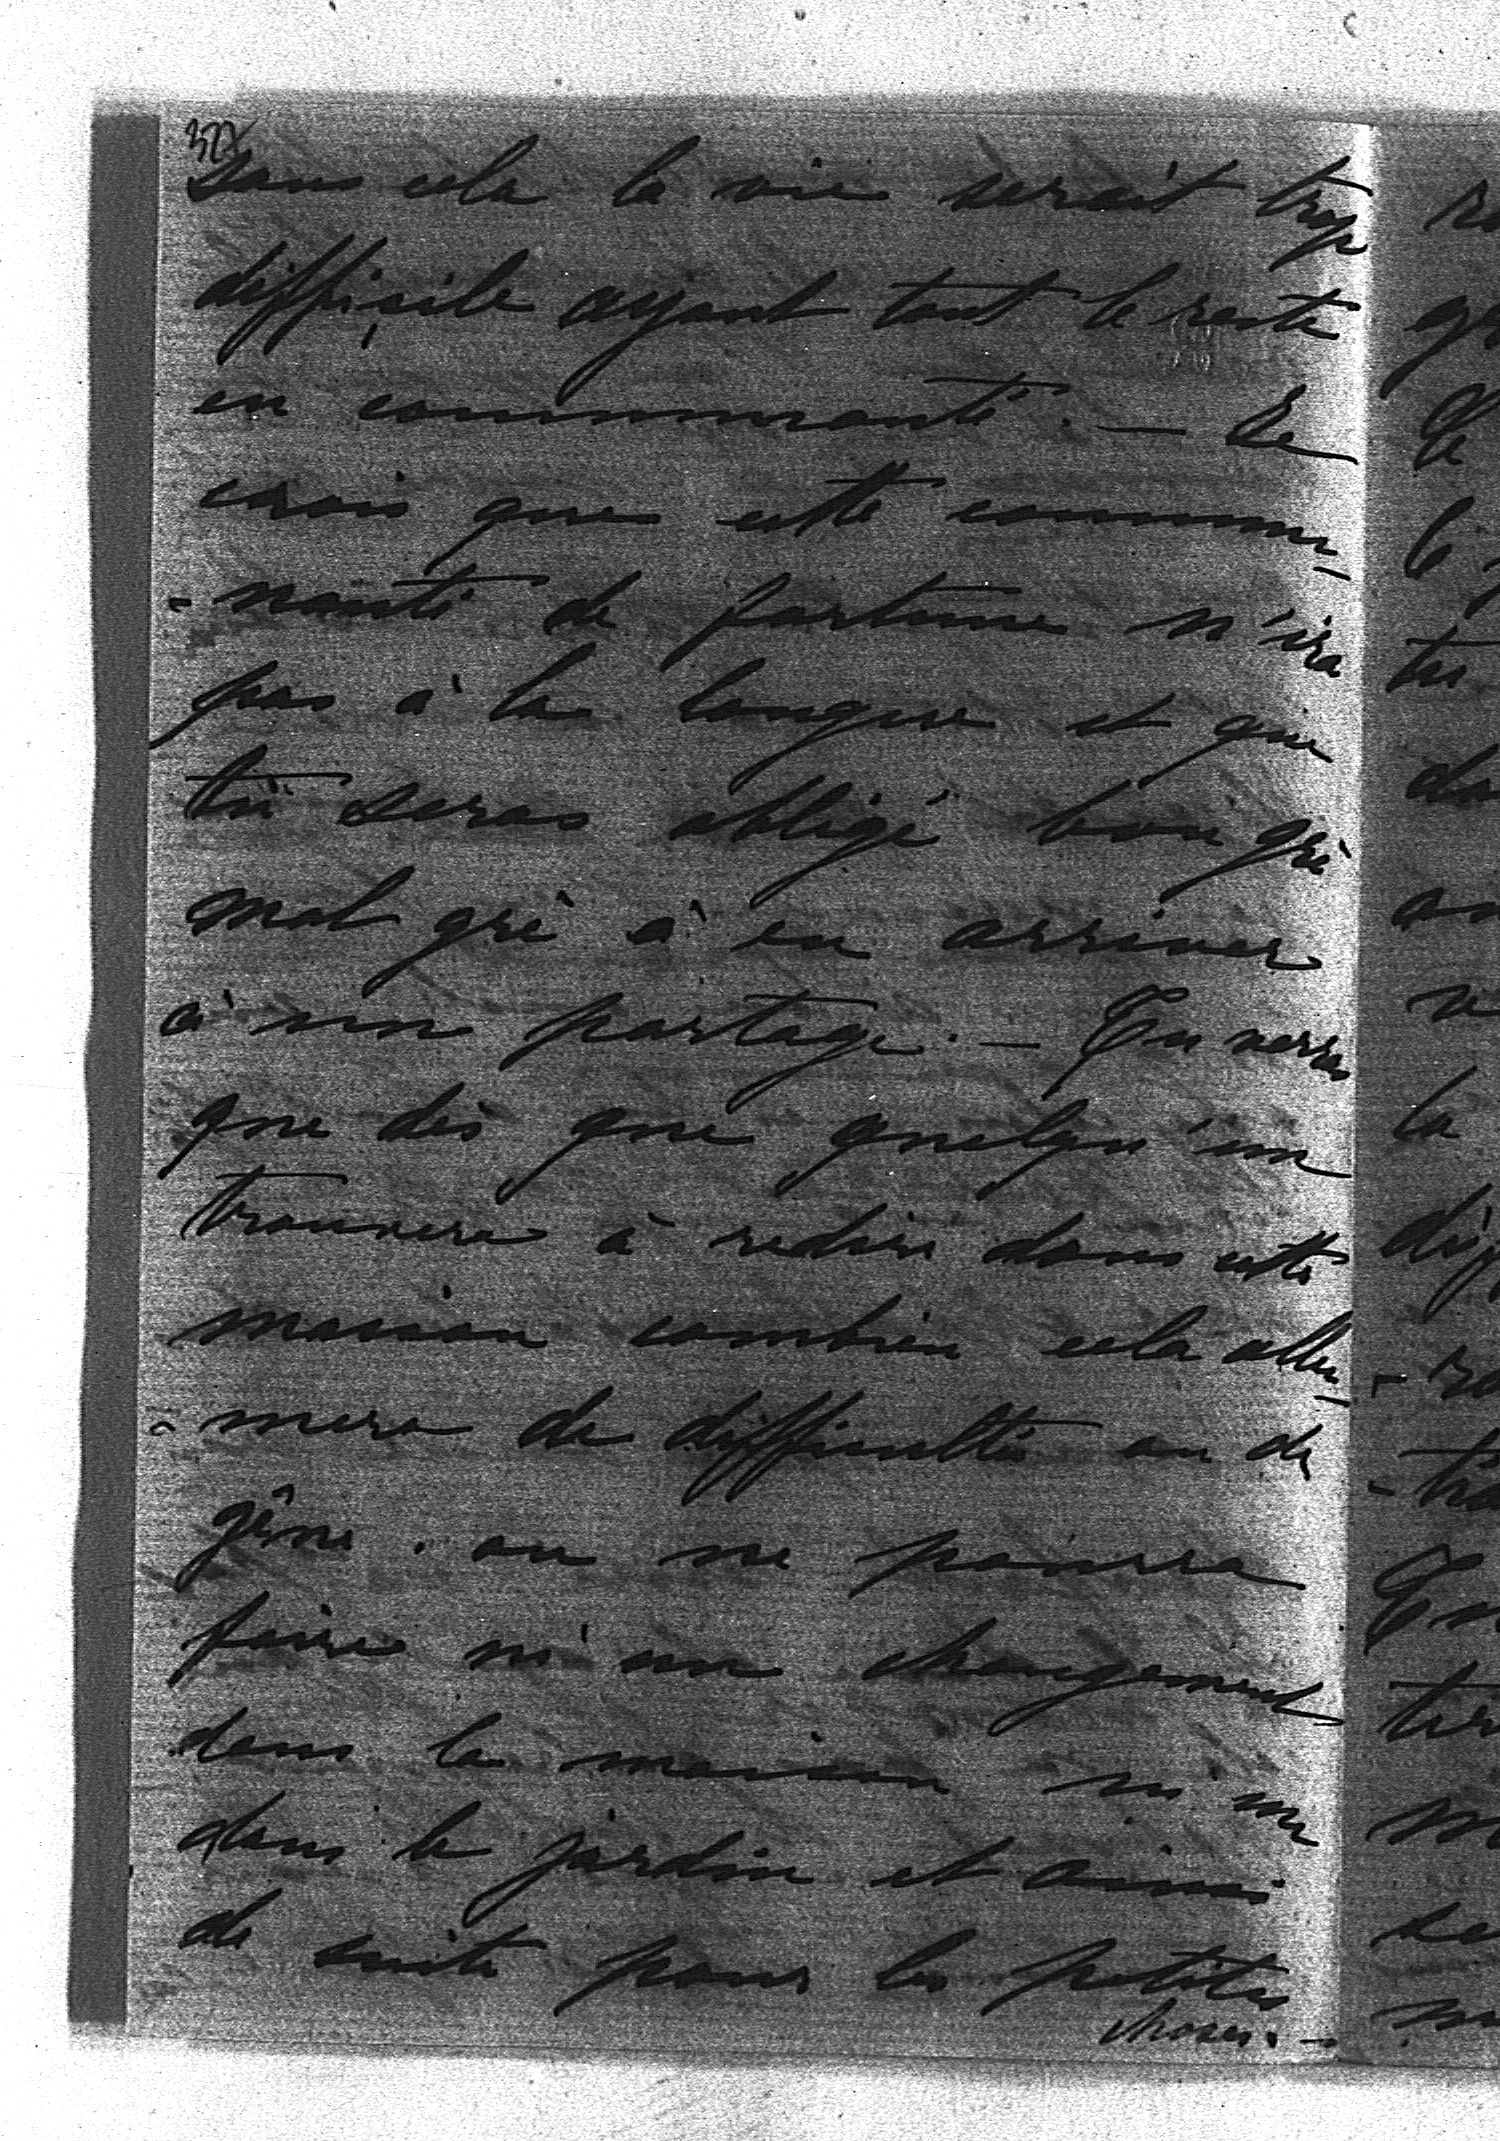 32
sans cela la vie serait trop
difficile ayant tout le reste
en communauté. — Je
crois que cette commu-
-nauté de fortune n'ira
pas à la longue et que
tu seras obligé bon gré
mal gré à en arriver
à un partage. — Tu verras
que dès que quelqu'un
trouvera à redire dans cette
maison combien cela allu-
-mera de difficultés ou de
gêne. on ne pourra
faire ni un changement
dans la maison ni un
dans le jardin et ainsi
de suite pour les petites
choses. —